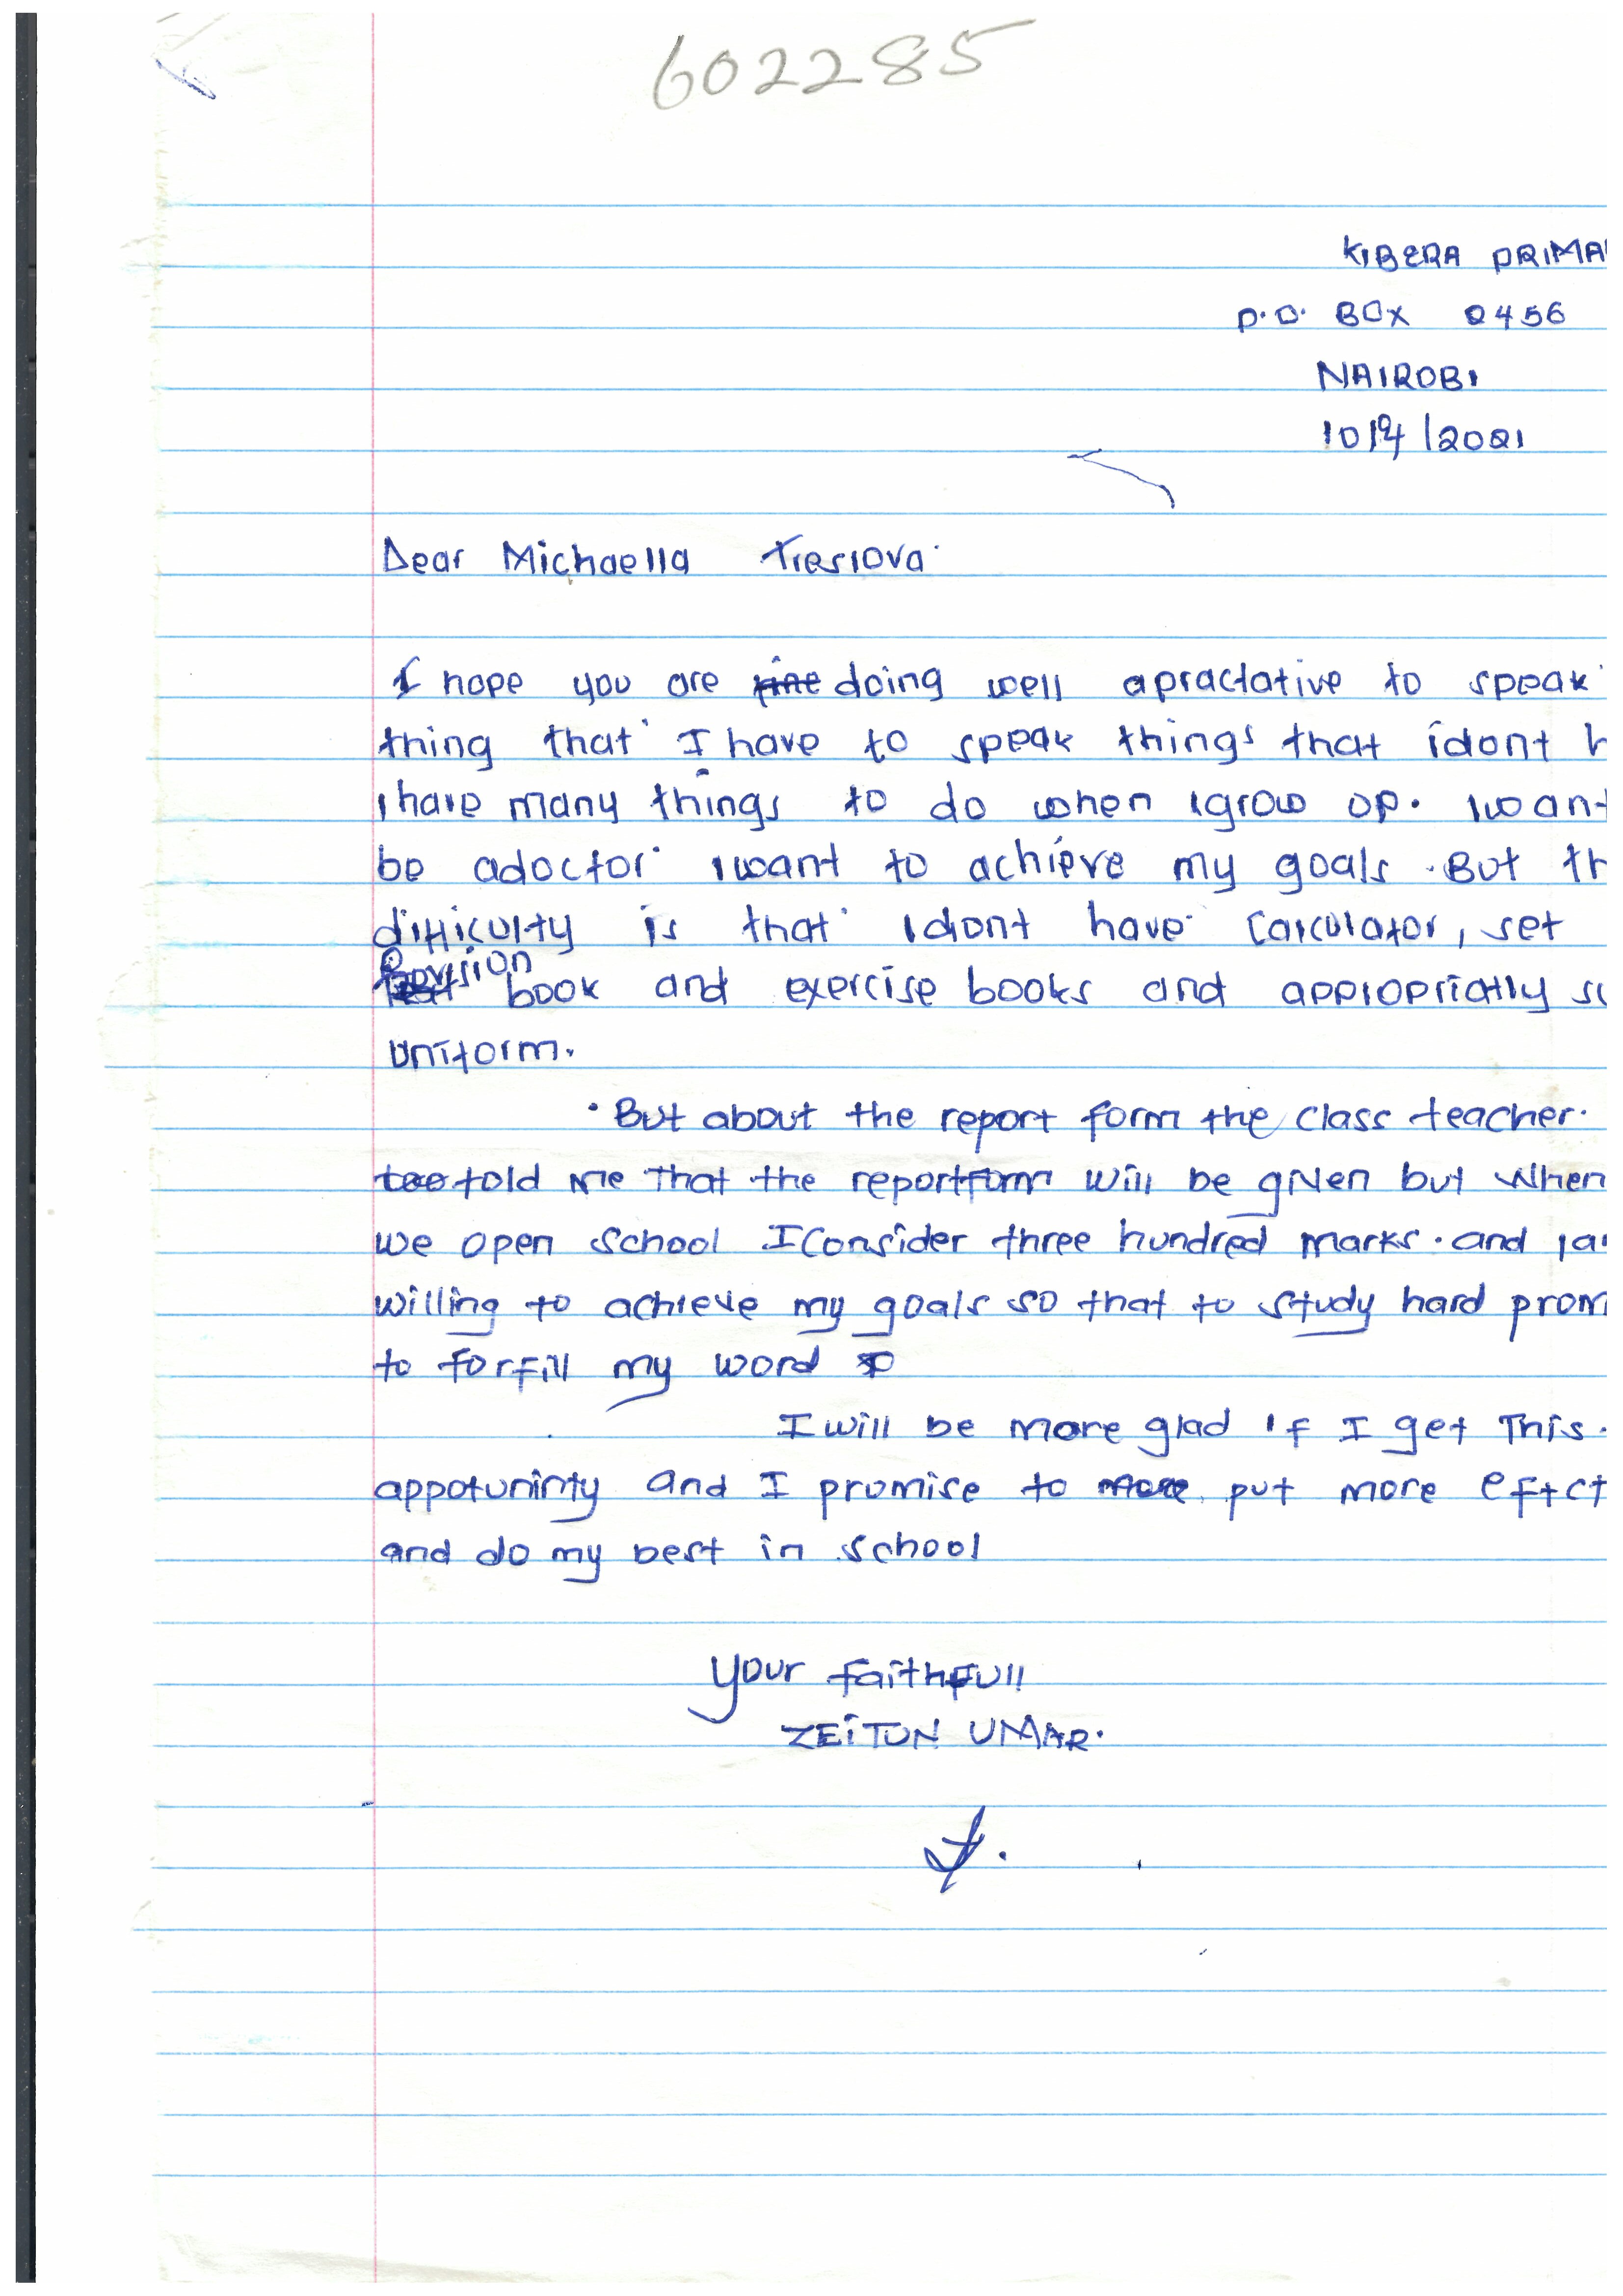 602285
KIBERA PRIMA
P.O. BOX 0456
NAIROBI
10/4/2021
Dear Michaella Treslova
I hope you are doing well apractative to speak
thing that I have to speak things that idont h
I have many things to do when igrow up. I want
be adoctor I want to achieve my goals. But th
difficulty is that Idont have calculator, set
Revision book and exercise books and appropriatly sc
uniform.
But about the report form the class teacher.
told me that the reportform will be given but when
we open school I Consider three hundred marks. and Ia
willing to achieve my goals so that to study hard prom
to forfill my word
I will be more glad if I get This.
appotuninty and I promise to put more effct
and do my best in school
your faithfull
ZEITUN UMAR.